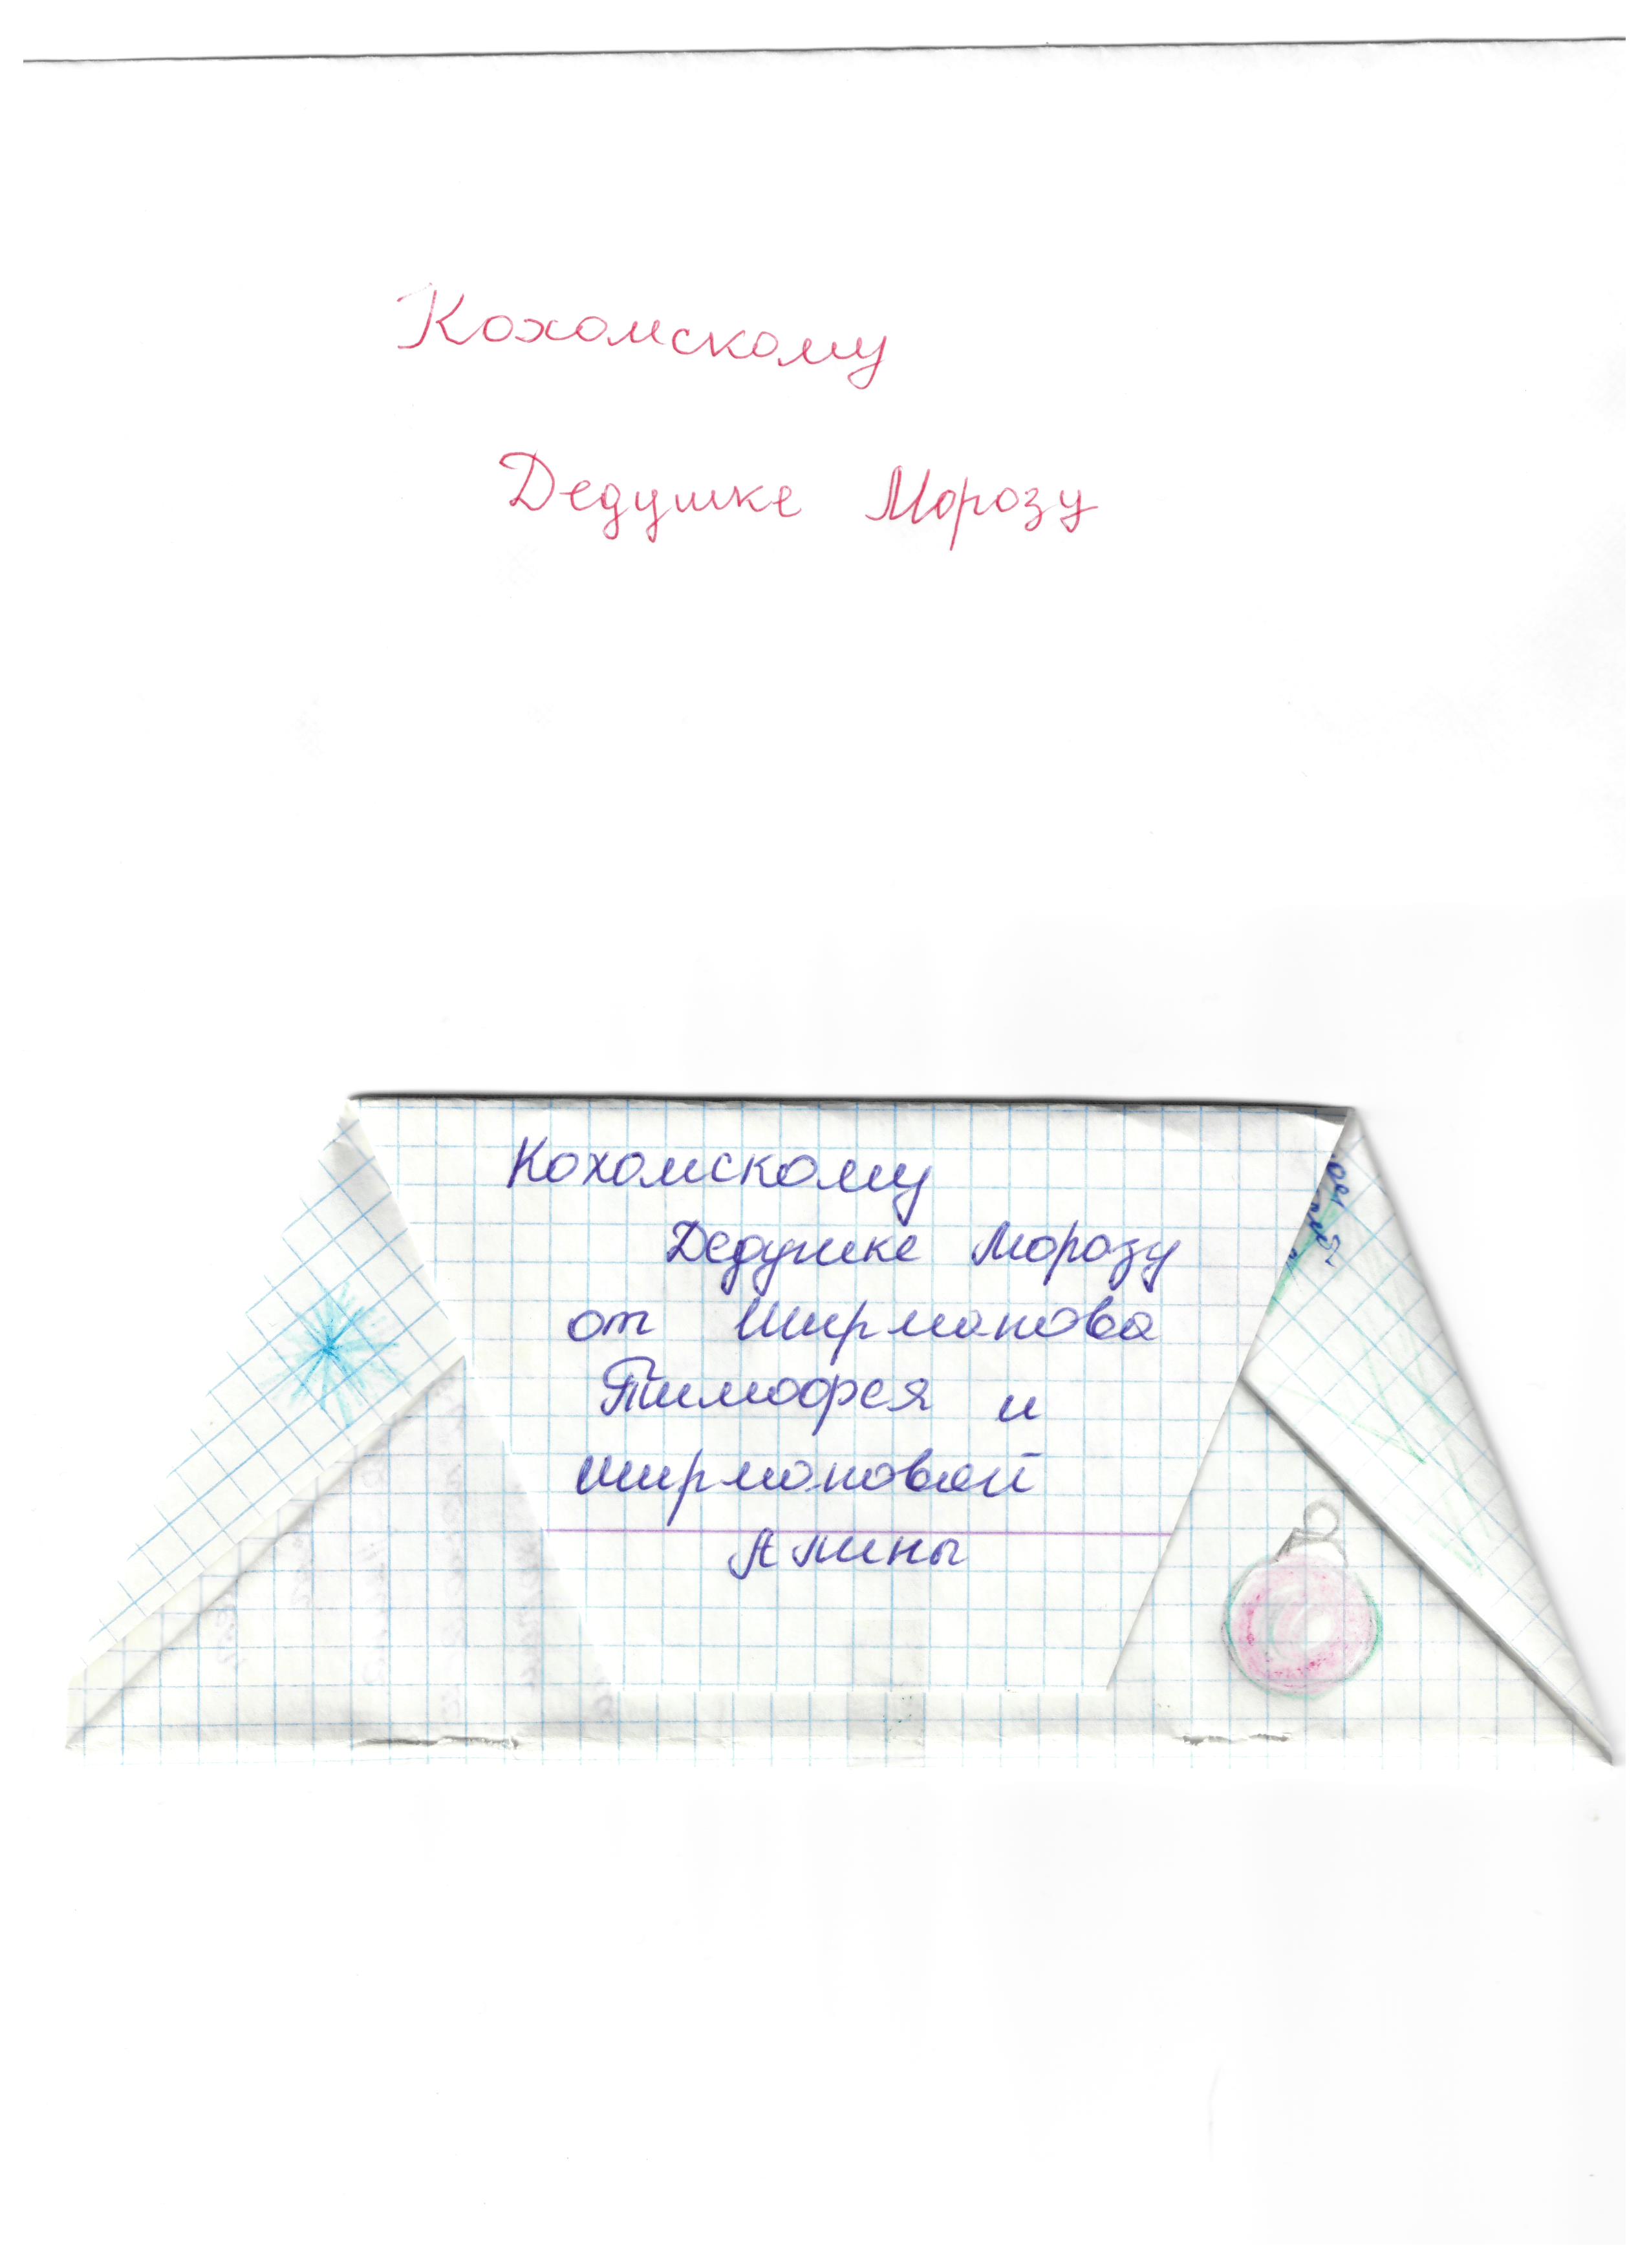 Кохомскому
Дедушке Морозу
Кохомскому
Дедушке Морозу
от Ширманова
Тимофея и
Ширмановой
Амины